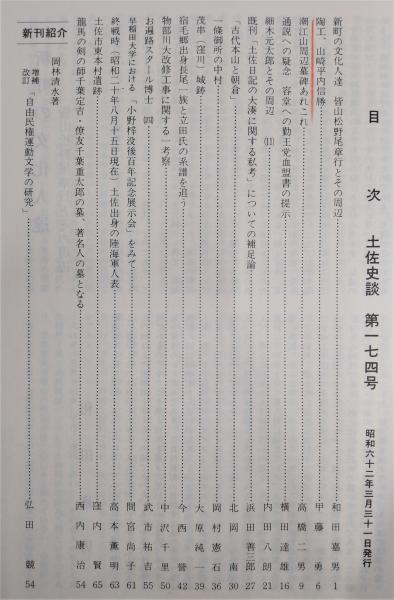 目次　土佐史談　第一七四号
昭和六十二年三月三十一日発行
新町の文化人達　皆山松野尾章行とその周辺……和田嘉男 1
陶工、山崎平内信勝……甲藤勇 6
潮江山周辺墓碑あれこれ……高橋二男 9
通説への疑念　容堂への勤王党血盟書の提示……横田達雄 16
細木元太郎とその周辺　(II)……内田八朗 21
既刊「土佐日記の大湊に関する私考」についての補足論……浜田善三郎 27
「古代本山と朝倉」……北岡南 30
一條御所の中村……岡村憲石 36
茂串（窪川）城跡……大原純一 39
宿毛郷出身長尾一族と立田氏の系譜を追う……今西 42
物部川大改修工事に関する一考察……中沢千里 50
お遍路スタール博士　(四)……武市祐吉 55
早稲田大学における「小野梓没後百年記念展示会」をみて……間宮尚子 61
終戦時（昭和二十年八月十五日現在）土佐出身の陸海軍人表……高本薫明 63
土佐市東本村遺跡……窪内賢 65
龍馬の剣の師千葉定吉・僚友千葉重太郎の墓、著名人の墓となる……西内康治 54
新刊紹介
岡林清水著
増補改訂「自由民権運動文学の研究」……弘田競 54